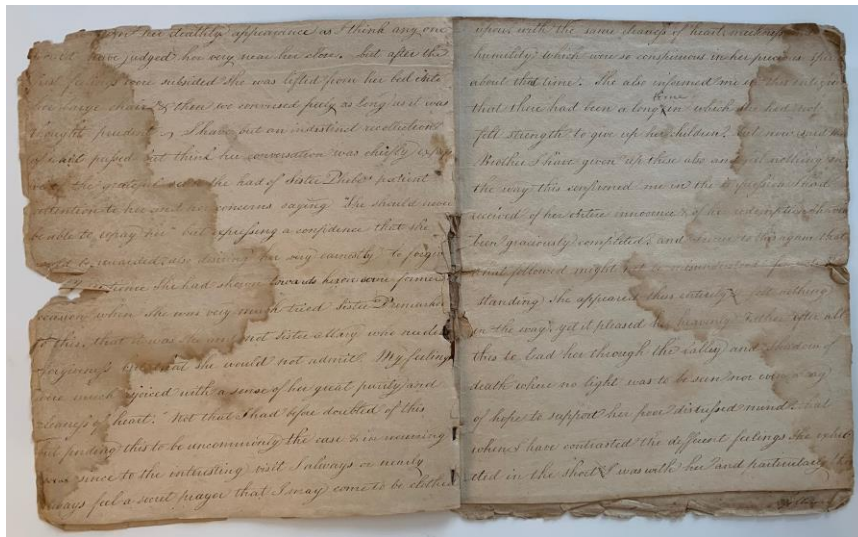 her deathly appearance as I think any one
have judged her very near her close. but after the
were subsided she was lifted from her bed into
large chair & then we conversed freely as long as it was
thought prudent I have but an indistinct recollection
of what passed but think her conversation was chiefly
the grateful sense she had of Sister Phebe's patient
attention to her and her concerns saying "She should never
be able to repay her" but expressing a confidence that she
would be rewarded. also desiring her very earnestly to forgive
she had shown towards her on some former
occasion when she was very much tried Sister
that it was she and not Sister Mary who needed
forgiveness but that she would not admit. My feelings
were much rejoiced with a sense of her great purity and
cleanness of heart." Not that I had before doubted of this
but finding this to be uncommonly the case & in recurring
since to the interesting visit I always or nearly
always feel a secret prayer that I may come to be clothed
upon with the same cleaness of heart meekness
humility which were so conspicuous in her precious
about that time. She also informed me in this
that there had been a long time in which she had not
felt strength to give up her children? but now said
Brother I have given up these also and nothing in
the way this confirmed me in the I had
received of her entire innocence & of her redemption having
been graciously completed. and again that
what followed might not be
standing she appeared thus entirely felt nothing
in the way. yet it pleased her heavenly Father after all
this to lead her through the valley and shadow of
death where no light was to be seen nor even a ray
of hope to support her poor distressed mind. but
when I have contrasted the different feelings she
in the short I was with her and particularly